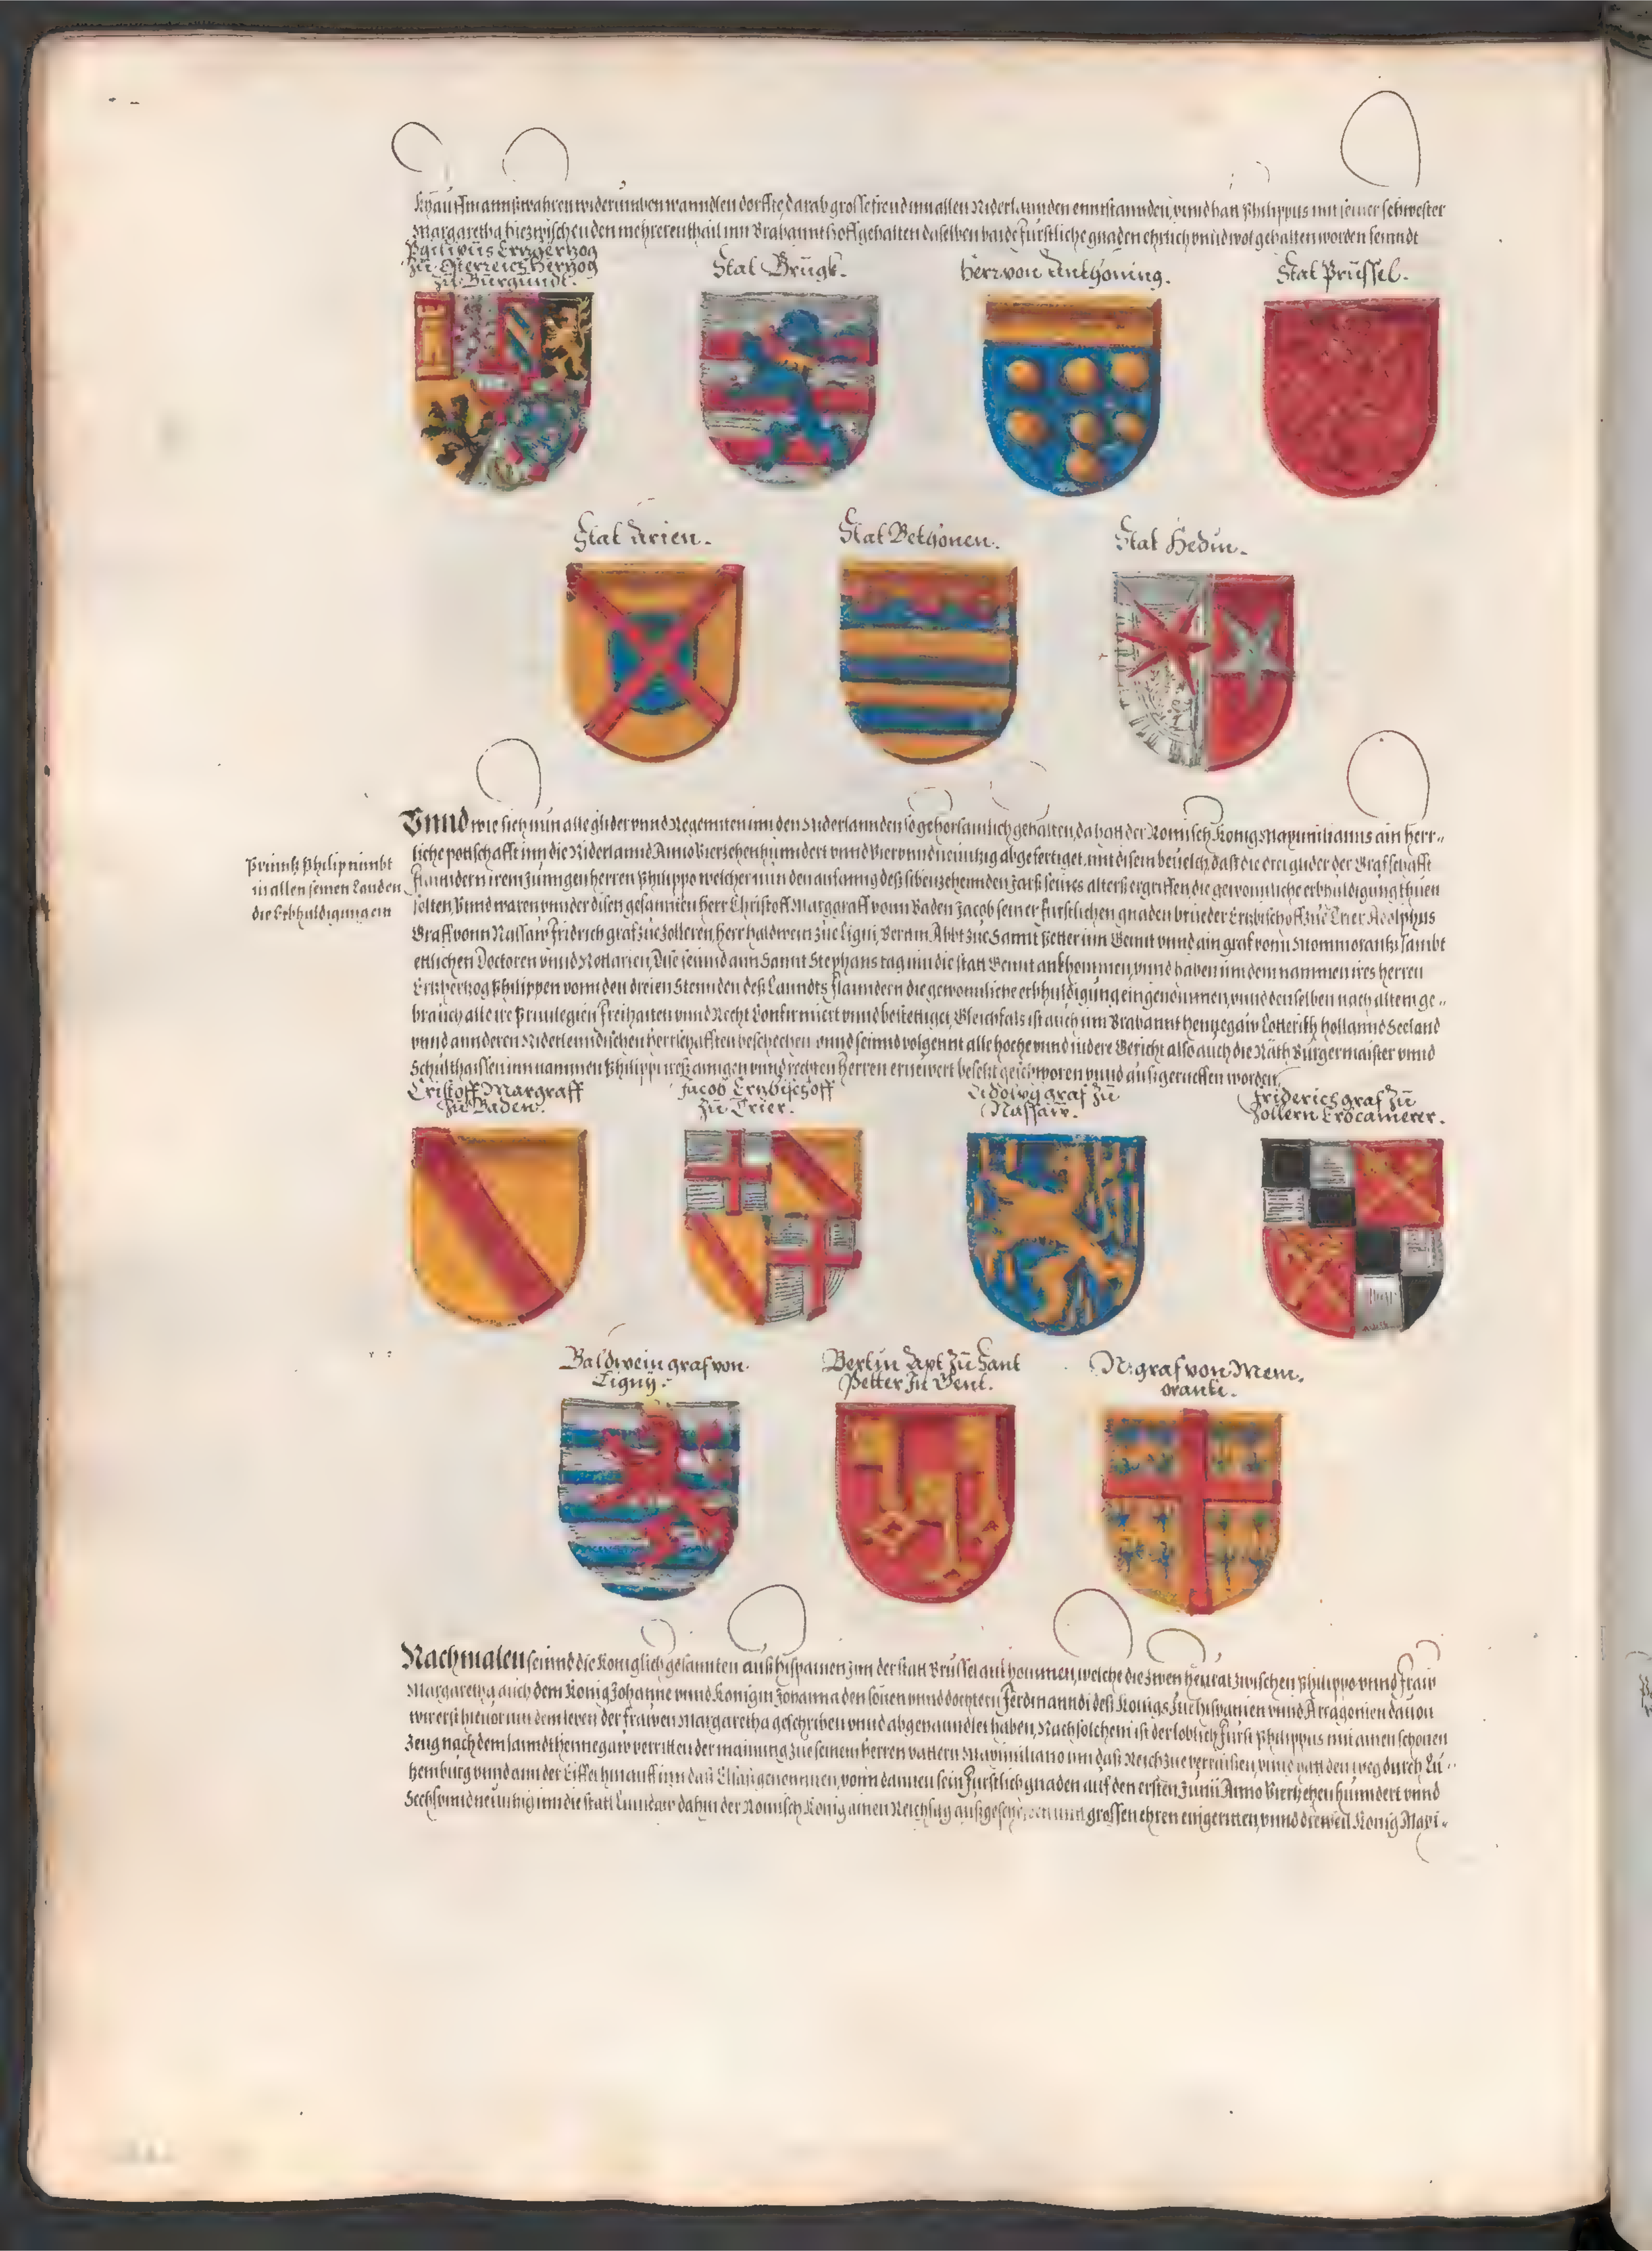 Khauffmannßwahren widerumben wanndlen dorffte, darab grosse freud inn allen Niderlannden enntstannden, vnnd hatt Philippus mit seiner schwester
Margaretha hiezwischen den mehrerentheil inn Brabannt Hoff gehalten daselben baide fürstliche gnaden ehrlich vnnd wol gehalten worden seinndt
Philippus Ertzherzog
zu Osterreich Hertzog
zu Burgundt.
Stat Brügk.
Herr von Anthoning.
Stat Prüssel.
Stat Arien.
Stat Bethonen.
Stat Hedin.
Vnnd wie sich nun alle glider vnnd Regennten inn den Niderlannden so gehorsamlich gehalten, da hatt der Romisch König Maximilianus ain herr-
liche pottschafft inn die Niderlannd Anno Vierzehenhunndert vnnd Viervnndneuntzig abgefertiget, mit disem beuelch, daß die drei glider der Graffschafft
Flanndern irem jungen herren Philippo welcher nun den anfanng deß sibenzehennden Jars seines alters ergriffen die gewonnliche erbhuldigung thuen
solten, Vnnd waren vnnder disen gesannten Herr Christoff Marggraff vonn Baden Jacob seiner fürstlichen gnaden brueder Ertzbischoff zue Trier Adolphus
Graff vonn Nassaw Fridrich graf zue Zolleren, Herr Baldwein zue Ligni, Bertin Abbt zue Sannt Petter inn Gennt vnnd ain graf vonn Mommorantzi sambt
ettlichen Doctoren vnnd Nottarien, Dise seinnd ann Sannt Stephans tag inn die statt Gennt ankhommen, vnnd haben inn dem nammen ires herren
Ertzhertzog Philippen vonn den dreien Stennden deß Lanndts Flanndern die gewonnliche erbhuldigung eingenommen, vnnd denselben nach altem ge-
brauch alle ire Priuilegien Freihaiten vnnd Recht Confirmiert vnnd bestettiget, Gleichfals ist auch inn Brabannt Hennegaw Lotterich Hollannd Seeland
vnnd annderen Niderlenndischen herrschafften beschechen vnnd seinnd volgennt alle hoche vnnd nidere Gericht also auch die Räth Bürgermaister vnnd
Schulthaissen inn nammen Philippi ires ainigen vnnd rechten herren ernewert besetzt geschworen vnnd außgerueffen worden.
Prinntz Philip nimbt
in allen seinen Landen
die Erbhuldigung ein
Cristoff Margraff
zu Baden.
Jacob Ertzbischoff
zu Trier.
Adolvg graf zu
Nassaw.
Friderich graf zu
Zollern Erbcamerer.
Baldwein graf von
Ligny.
Bertin Apt zu Sant
Petter zu Gent.
N. graf von Mem,
oranti.
Nachmalen seinnd die Königlich gesannten auß Hispanien inn der statt Brüssel ankhommen, welche die zwen heyrat zwischen Philippo vnnd Fraw
Margaretha auch dem König Johanne vnnd Königin Johanna den sönen vnnd döchtern Ferdinanndi deß Königs zue Hispanien vnnd Arragonien dauon
wir erst hieuor inn dem leben der frawen Margaretha geschriben vnnd abgehanndlet haben, Nach solchem ist der loblich Fürst Philippus mit ainen schonen
Zeug nach dem lanndt Hennegaw verritten der mainung zue seinem herren vattern Maximiliano inn daß Reich zue verraisen, vnnd hatt den weg durch Lü-
tzemburg vnnd ann der Eiffel hinauff inn daß Elsaß genommen, vonn dannen sein Fürstlich gnaden auf den ersten Junii Anno Vierzehenhunndert vnnd
Sechsvnndneuntzig inn die statt Lindaw dahin der Romisch König ainen Reichstag außgeschriben mit grossen ehren eingeritten, vnnd dieweil König Maxi-